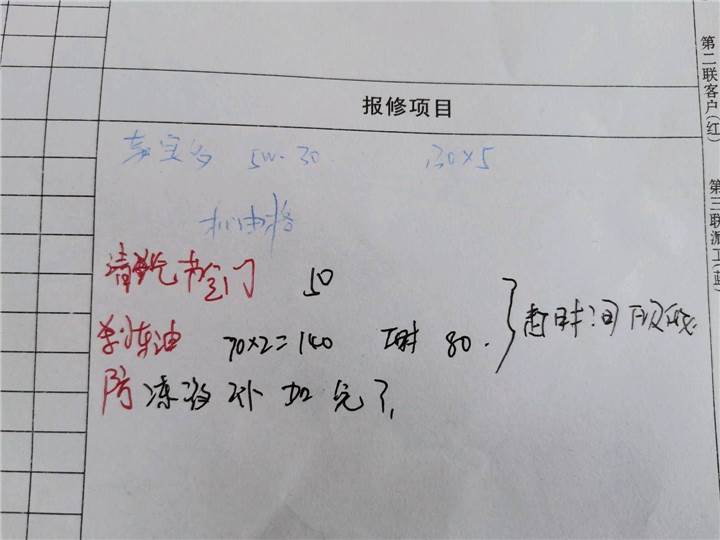 报修项目
嘉实多 5W-30 130×5
机油格
清洗节气门 50
刹车油 70×2=140 工时 80.
赶时间下次做
防冻液补加完了
第二联客户(红)
第三联派工(蓝)